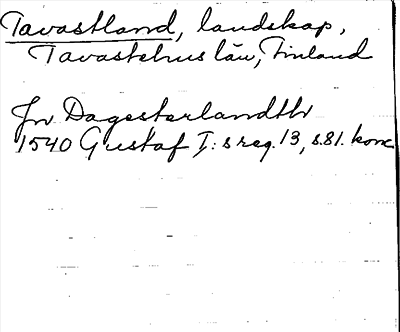 Tavastland, landskap,
Tavastehus län, Finland
Jn Dagesterlandth
1540 Gustaf I:s reg. 13, s.81. konc